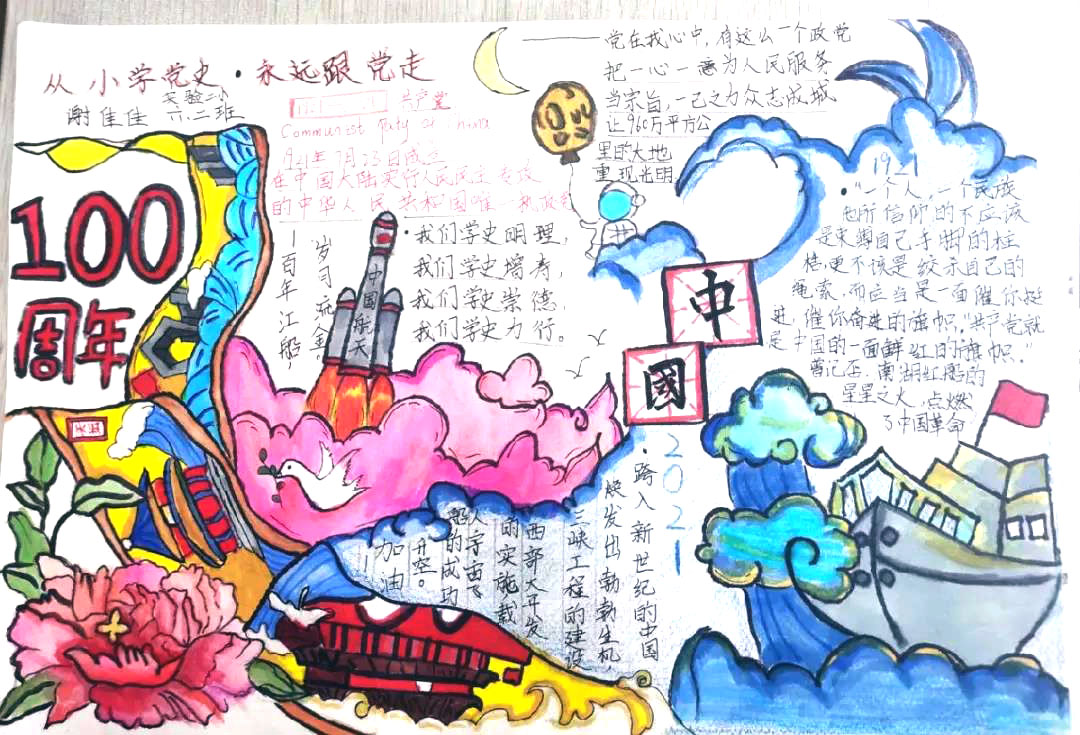 从小学党史·永远跟党走
实验二小
谢佳佳 六.二班
共产党
Communist
1921年7月23日成立
在中国大陆实行人民民主专政
的中华人民共和国唯一执政党
党在我心中,有这么一个政党
把一心一意为人民服务
当宗旨,一己之力众志成城
让960万平方公
里的大地
重现光明
100
周年
岁月流金。
一百年江船,
中国航天
·我们学史明理,
我们学史增寿,
我们学史崇德,
我们学史力行。
中
國
1921
·"一个人,一个民族
他所信仰的不应该
是束缚自己手脚的桎
梏,更不该是绞杀自己的
绳索,而应当是一面催你挺
进,催你奋进的旗帜,"共产党就
是中国的一面鲜红的旗帜."
曾记否,南湖红船的
星星之火,点燃
了中国革命
2021
·跨入新世纪的中国
焕发出勃勃生机
三峡工程的建设
西部大开发
的实施载
人宇宙飞
船的成功
升空。
加油